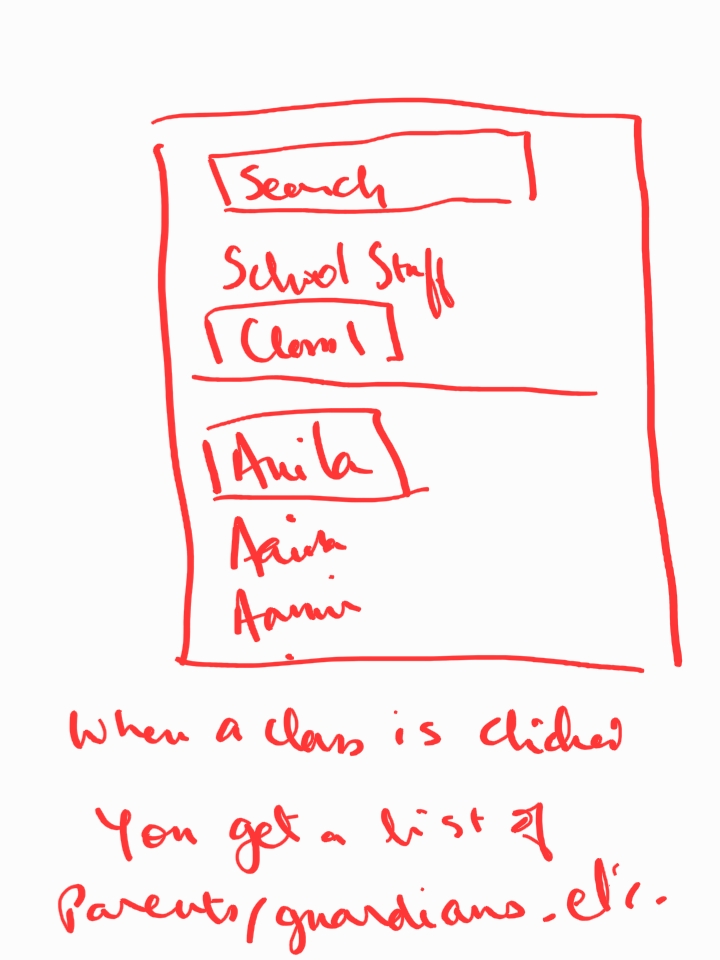 Search
School Staff
Class 1
Anila
Aaira
Aamir
When a class is clicked
You get a list of
Parents/guardians. etc.